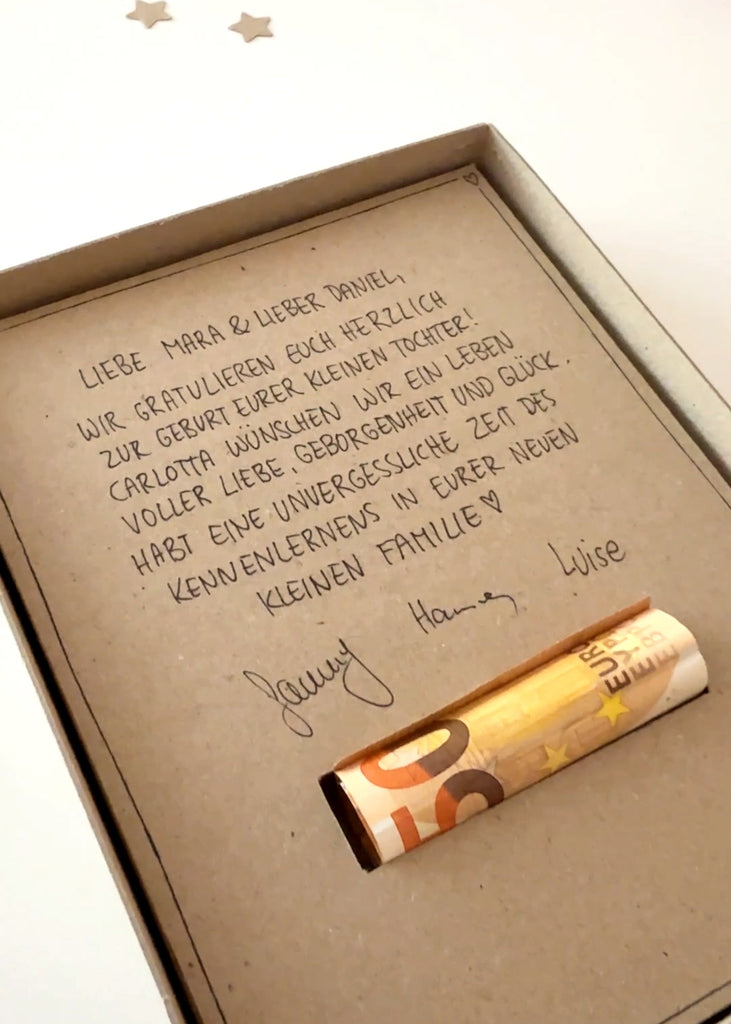 LIEBE MARA & LIEBER DANIEL,
WIR GRATULIEREN EUCH HERZLICH
ZUR GEBURT EURER KLEINEN TOCHTER!
CARLOTTA WÜNSCHEN WIR EIN LEBEN
VOLLER LIEBE, GEBORGENHEIT UND GLÜCK.
HABT EINE UNVERGESSLICHE ZEIT DES
KENNENLERNENS IN EURER NEUEN
KLEINEN FAMILIE ♥
Luise
50
EURO